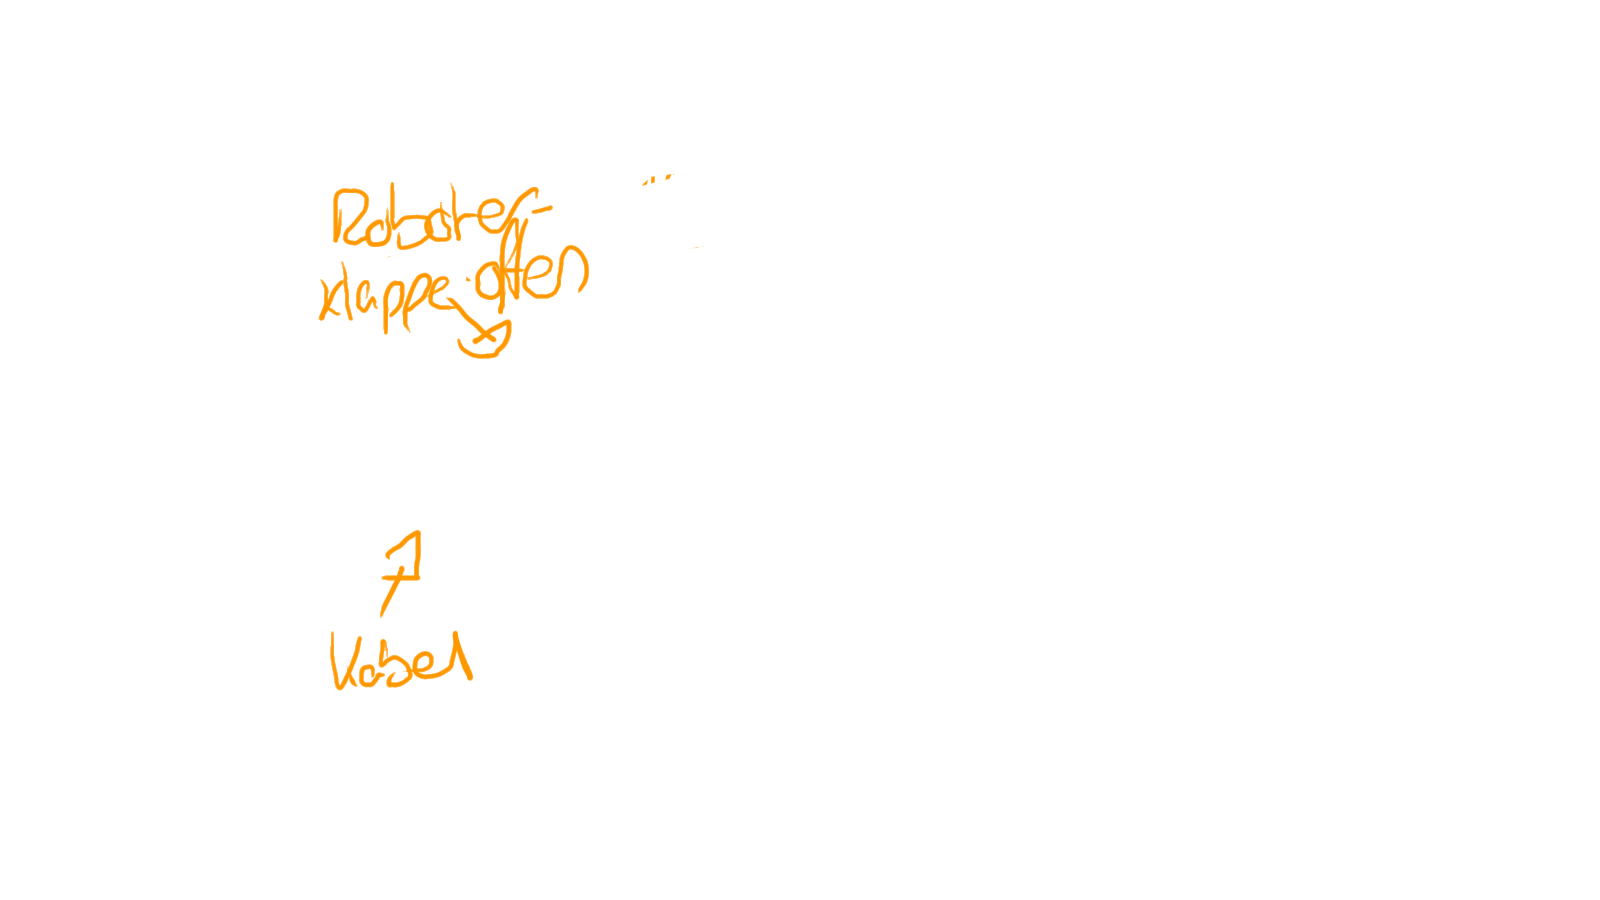 Roboter-
klappe offen
Kabel